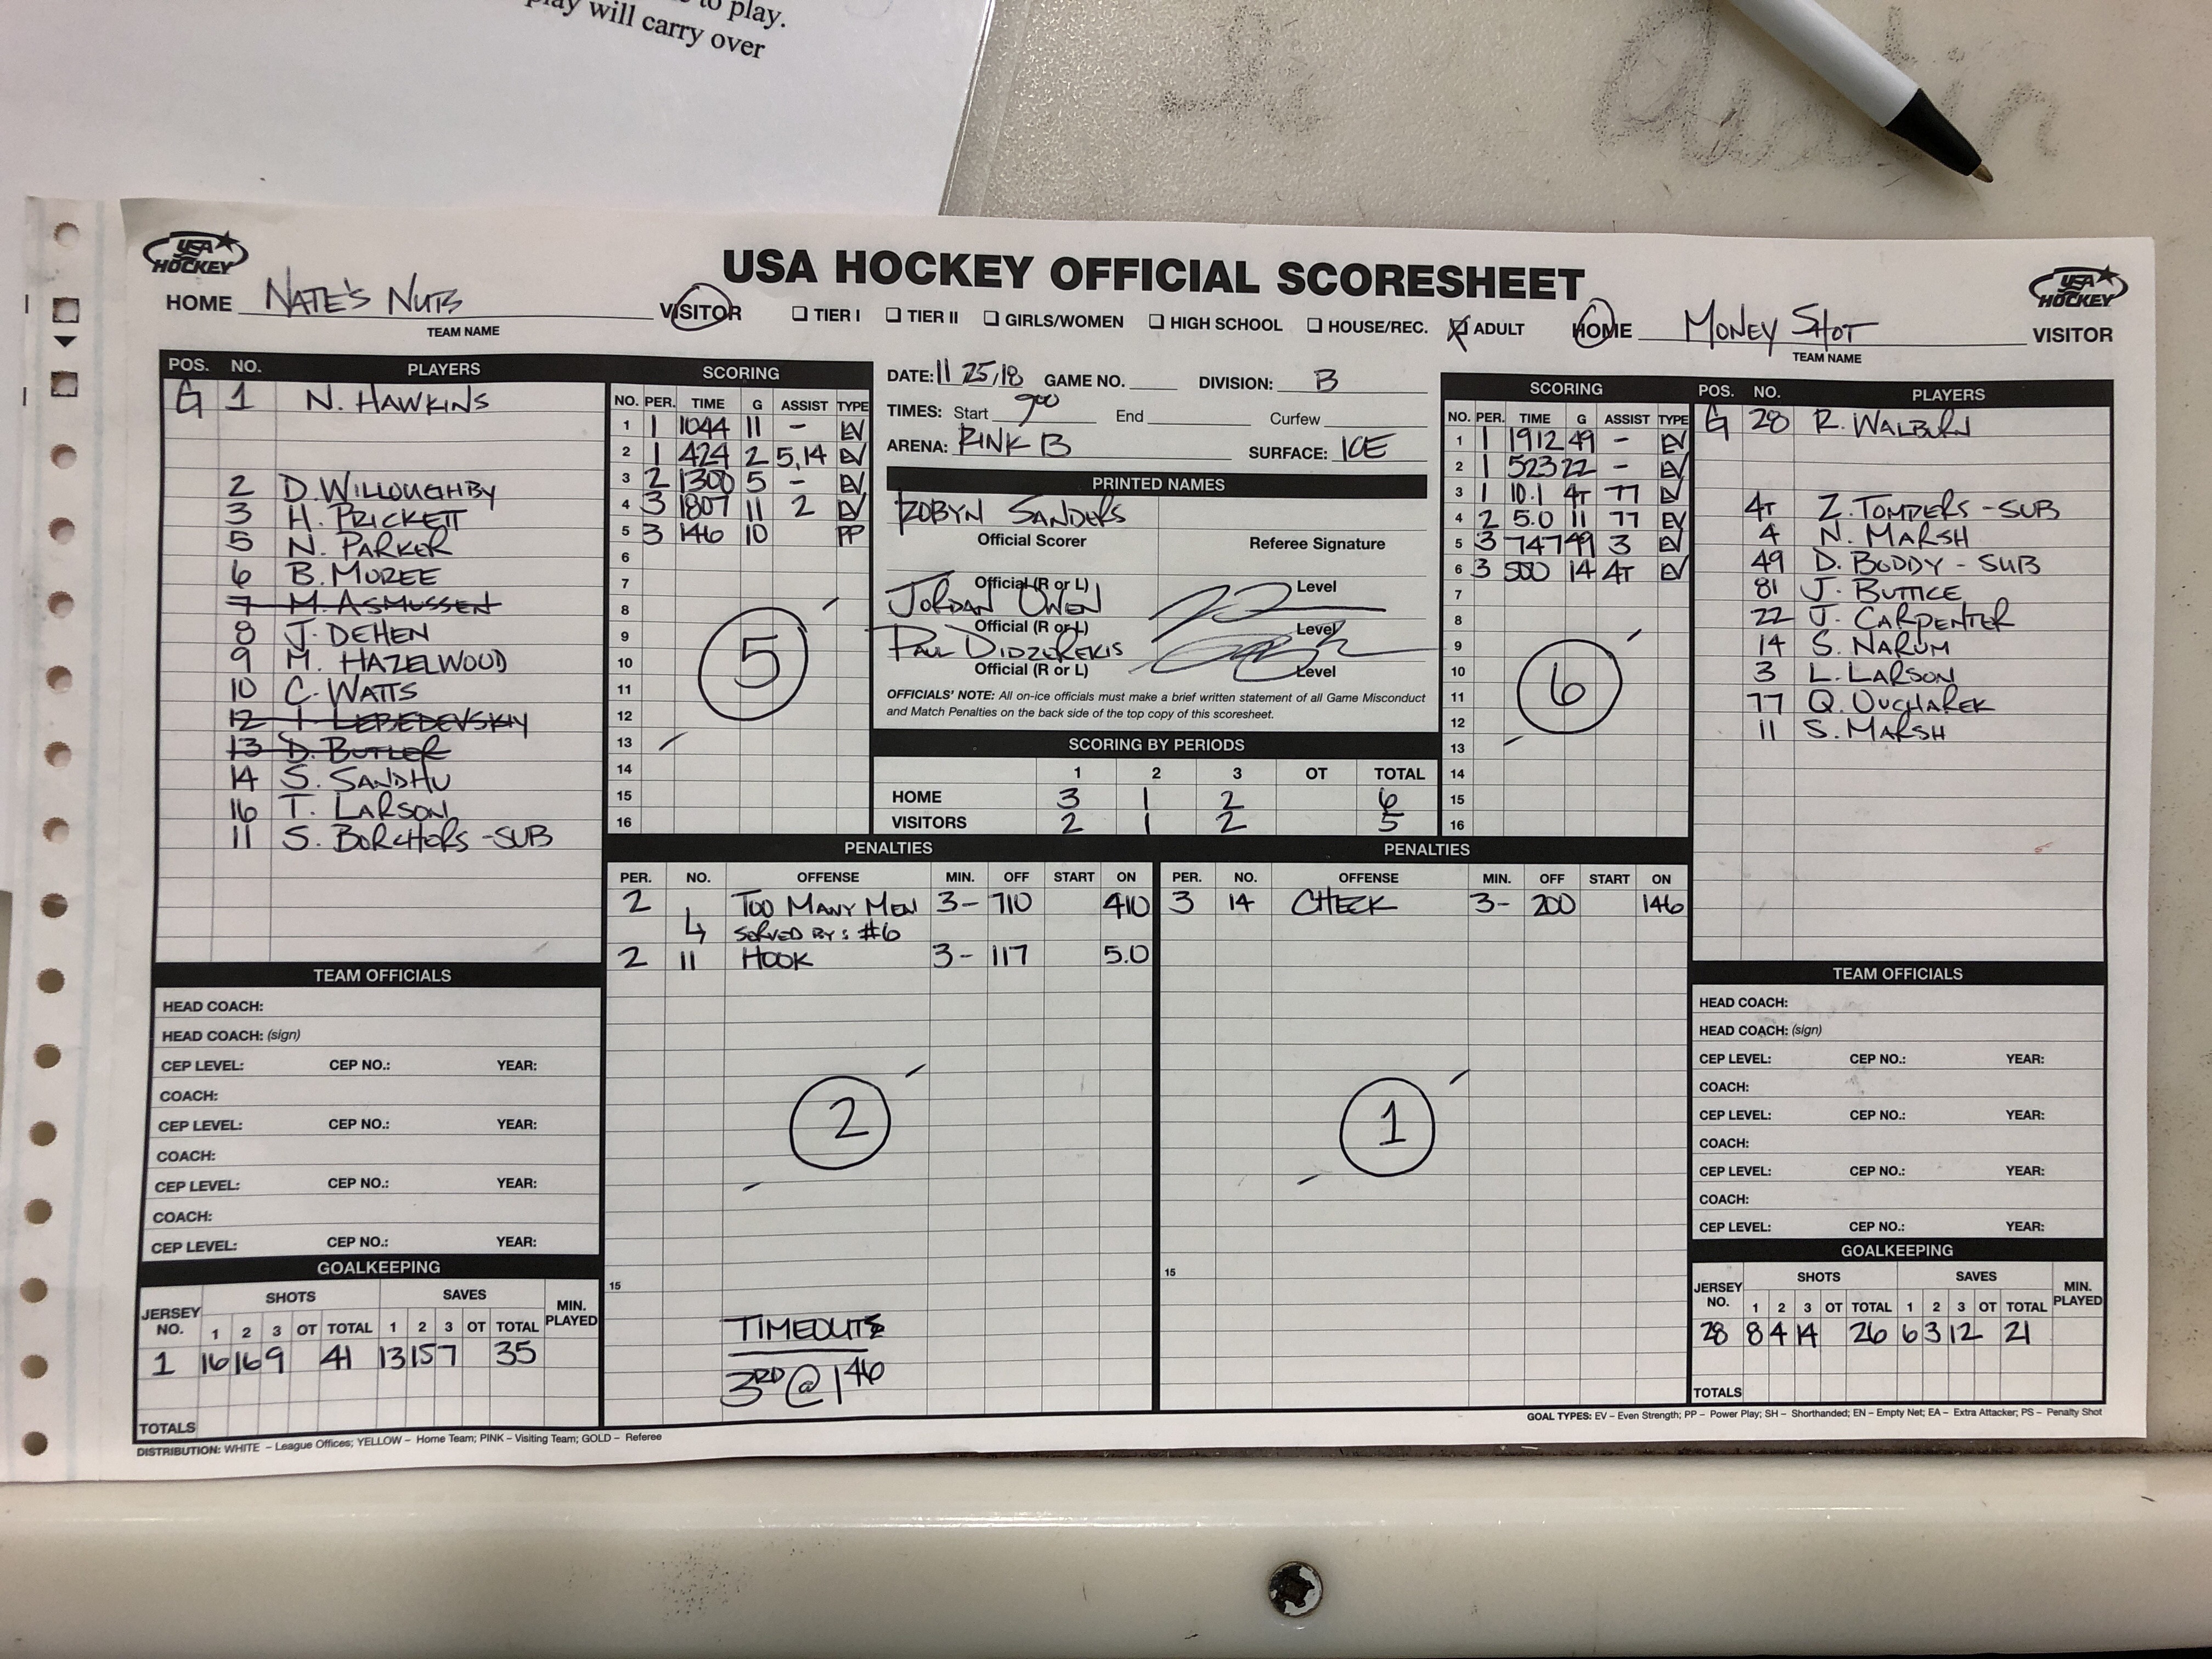 to play.
play will carry over
Austin
USA HOCKEY
USA HOCKEY OFFICIAL SCORESHEET
USA HOCKEY
HOME NATE'S NUTS VISITOR
TEAM NAME
TIER I TIER II GIRLS/WOMEN HIGH SCHOOL HOUSE/REC. X ADULT
HOME MONEY SHOT VISITOR
TEAM NAME
POS. NO. PLAYERS
G 1 N. HAWKINS
2 D. WILLOUGHBY
3 H. PRICKETT
5 N. PARKER
6 B. MOREE
7 M. ASMUSSEN
8 J. DEHEN
9 M. HAZELWOOD
10 C. WATTS
12 I. LEBEDEVSKIY
13 D. BUTLER
14 S. SANDHU
16 T. LARSON
11 S. BORCHERS - SUB
SCORING
NO. PER. TIME G ASSIST TYPE
1 1 1044 11 - EV
2 1 424 2 5,14 EV
3 2 1300 5 - EV
4 3 1807 11 2 EV
5 3 146 10 PP
6
7
8
9
10
11
12
13
14
15
16
5
DATE: 11 25/18 GAME NO. DIVISION: B
TIMES: Start 900 End Curfew
ARENA: RINK B SURFACE: ICE
PRINTED NAMES
ROBYN SANDERS
Official Scorer Referee Signature
Official (R or L) Level
JORDAN OWEN
Official (R or L) Level
PAUL DIDZEREKIS
Official (R or L) Level
OFFICIALS' NOTE: All on-ice officials must make a brief written statement of all Game Misconduct
and Match Penalties on the back side of the top copy of this scoresheet.
SCORING BY PERIODS
1 2 3 OT TOTAL
HOME 3 1 2 6
VISITORS 2 1 2 5
SCORING
NO. PER. TIME G ASSIST TYPE
1 1 1912 49 - EV
2 1 523 22 - EV
3 1 10.1 4T 77 EV
4 2 5.0 11 77 EV
5 3 747 49 3 EV
6 3 500 14 4T EV
7
8
9
10
11
12
13
14
15
16
6
POS. NO. PLAYERS
G 28 R. WALBURN
4T Z. TOMPERS - SUB
4 N. MARSH
49 D. BODDY - SUB
81 J. BUTTICE
22 J. CARPENTER
14 S. NARUM
3 L. LARSON
77 Q. OUCHAREK
11 S. MARSH
PENALTIES
PER. NO. OFFENSE MIN. OFF START ON
2 TOO MANY MEN 3- 710 410
↳ SERVED BY: #6
2 11 HOOK 3- 117 5.0
2
15
TIMEOUTS
3RD @ 146
PENALTIES
PER. NO. OFFENSE MIN. OFF START ON
3 14 CHECK 3- 200 146
1
15
TEAM OFFICIALS
HEAD COACH:
HEAD COACH: (sign)
CEP LEVEL: CEP NO.: YEAR:
COACH:
CEP LEVEL: CEP NO.: YEAR:
COACH:
CEP LEVEL: CEP NO.: YEAR:
COACH:
CEP LEVEL: CEP NO.: YEAR:
GOALKEEPING
JERSEY NO. SHOTS SAVES MIN. PLAYED
1 2 3 OT TOTAL 1 2 3 OT TOTAL
1 16 16 9 41 13 15 7 35
TOTALS
TEAM OFFICIALS
HEAD COACH:
HEAD COACH: (sign)
CEP LEVEL: CEP NO.: YEAR:
COACH:
CEP LEVEL: CEP NO.: YEAR:
COACH:
CEP LEVEL: CEP NO.: YEAR:
COACH:
CEP LEVEL: CEP NO.: YEAR:
GOALKEEPING
JERSEY NO. SHOTS SAVES MIN. PLAYED
1 2 3 OT TOTAL 1 2 3 OT TOTAL
28 8 4 14 26 6 3 12 21
TOTALS
DISTRIBUTION: WHITE – League Offices; YELLOW – Home Team; PINK – Visiting Team; GOLD – Referee
GOAL TYPES: EV – Even Strength; PP – Power Play; SH – Shorthanded; EN – Empty Net; EA – Extra Attacker; PS – Penalty Shot